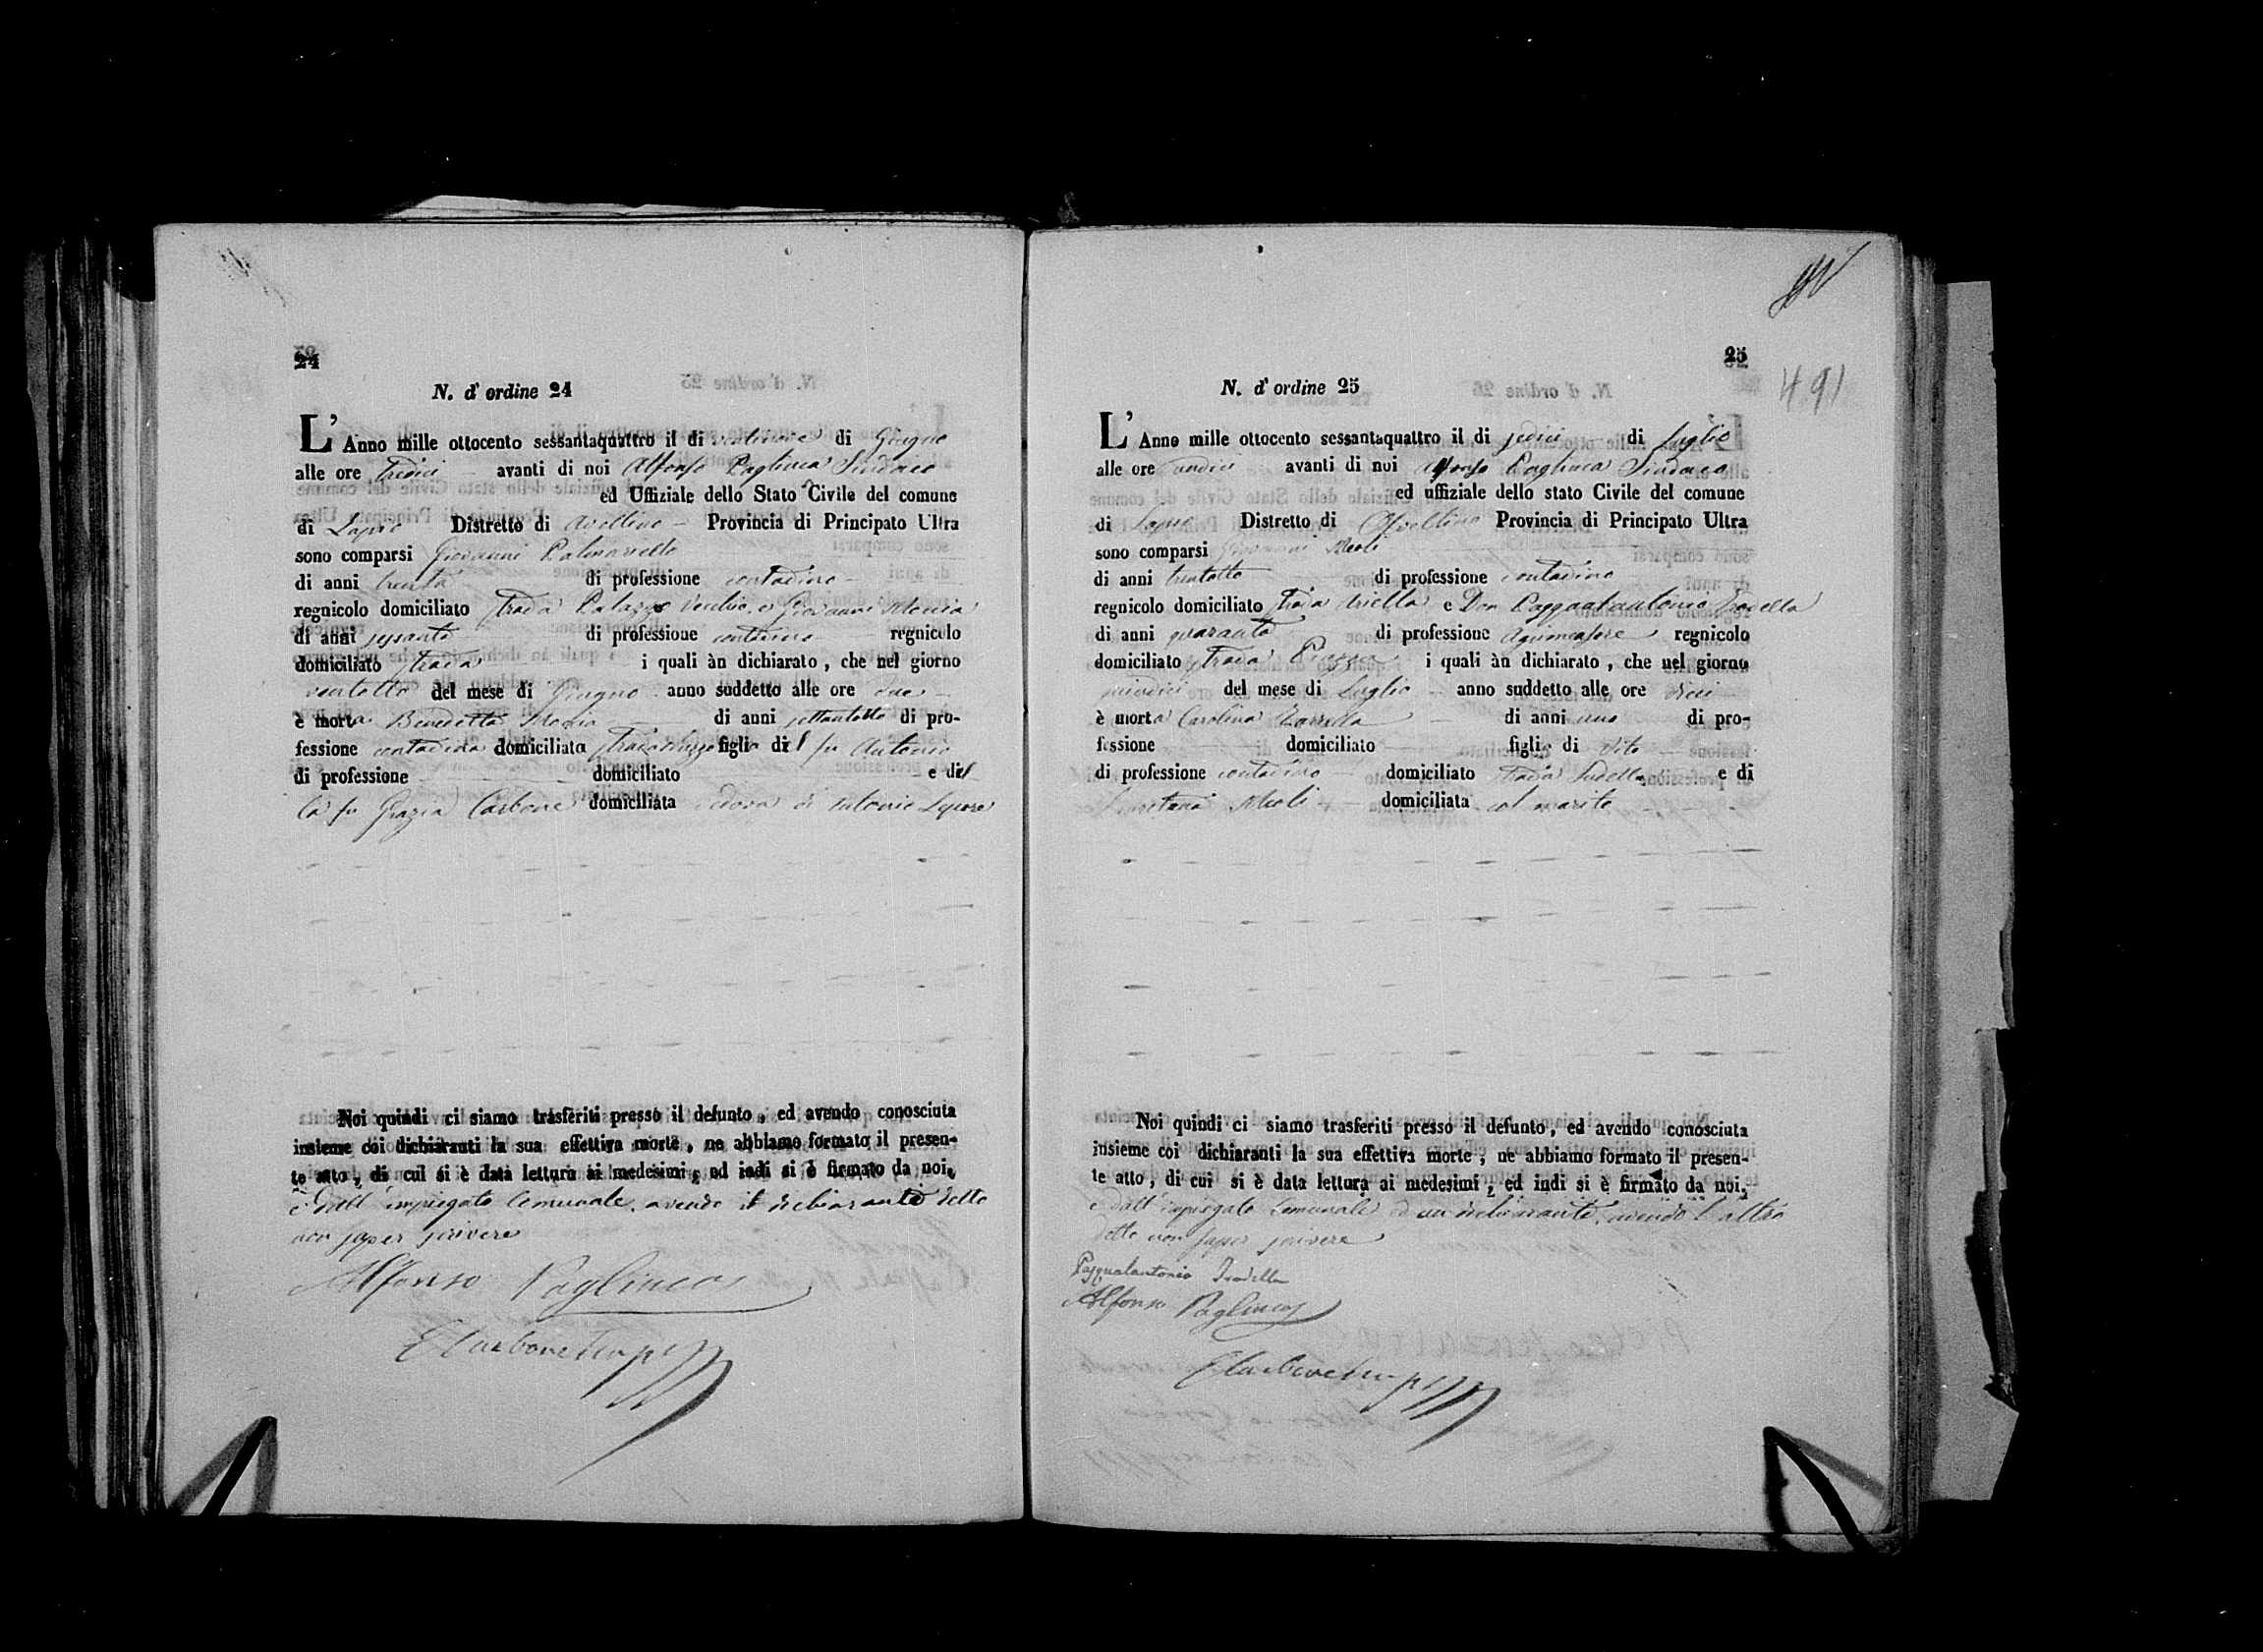 24
N. d' ordine 24
L' Anno mille ottocento sessantaquattro il di ventinove di Giugno
alle ore tredici avanti di noi Alfonso Pagliuca Sindaco
ed Uffiziale dello Stato Civile del comune
di Lapio Distretto di Avellino Provincia di Principato Ultra
sono comparsi Giovanni Palmariello
di anni trenta di professione contadino
regnicolo domiciliato strada Palazzo Vecchio e Giovanni
di anni sessanta di professione contadino regnicolo
domiciliato strada i quali àn dichiarato, che nel giorno
ventotto del mese di Giugno anno suddetto alle ore due
è morta Benedetta di anni settantotto di pro-
fessione contadina domiciliata figlia del fu Antonio
di professione domiciliato e del
la fu Grazia Carbone domiciliata vedova di Antonio Lepore
Noi quindi ci siamo trasferiti presso il defunto, ed avendo conosciuta
insieme coi dichiaranti la sua effettiva morte, ne abbiamo formato il presen-
te atto, di cui si è data lettura ai medesimi, ed indi si è firmato da noi,
e dall'impiegato Comunale, avendo i dichiaranti detto
non saper scrivere
Alfonso Pagliuca
25
491
N. d' ordine 25
L' Anno mille ottocento sessantaquattro il di sedici di Luglio
alle ore undici avanti di noi Alfonso Pagliuca Sindaco
ed uffiziale dello stato Civile del comune
di Lapio Distretto di Avellino Provincia di Principato Ultra
sono comparsi Giovanni Meoli
di anni trentotto di professione contadino
regnicolo domiciliato strada Ariella e Don Pasqualantonio Trodella
di anni quaranta di professione agrimensore regnicolo
domiciliato strada Piazza i quali àn dichiarato, che nel giorno
quindici del mese di Luglio anno suddetto alle ore dieci
è morta Carolina di anni uno di pro-
fessione domiciliato figlia di Vito
di professione contadino domiciliato strada e di
Meoli domiciliata col marito
Noi quindi ci siamo trasferiti presso il defunto, ed avendo conosciuta
insieme coi dichiaranti la sua effettiva morte, ne abbiamo formato il presen-
te atto, di cui si è data lettura ai medesimi, ed indi si è firmato da noi,
e dall'impiegato Comunale ed un dichiarante, avendo l'altro
detto non saper scrivere
Pasqualantonio Trodella
Alfonso Pagliuca